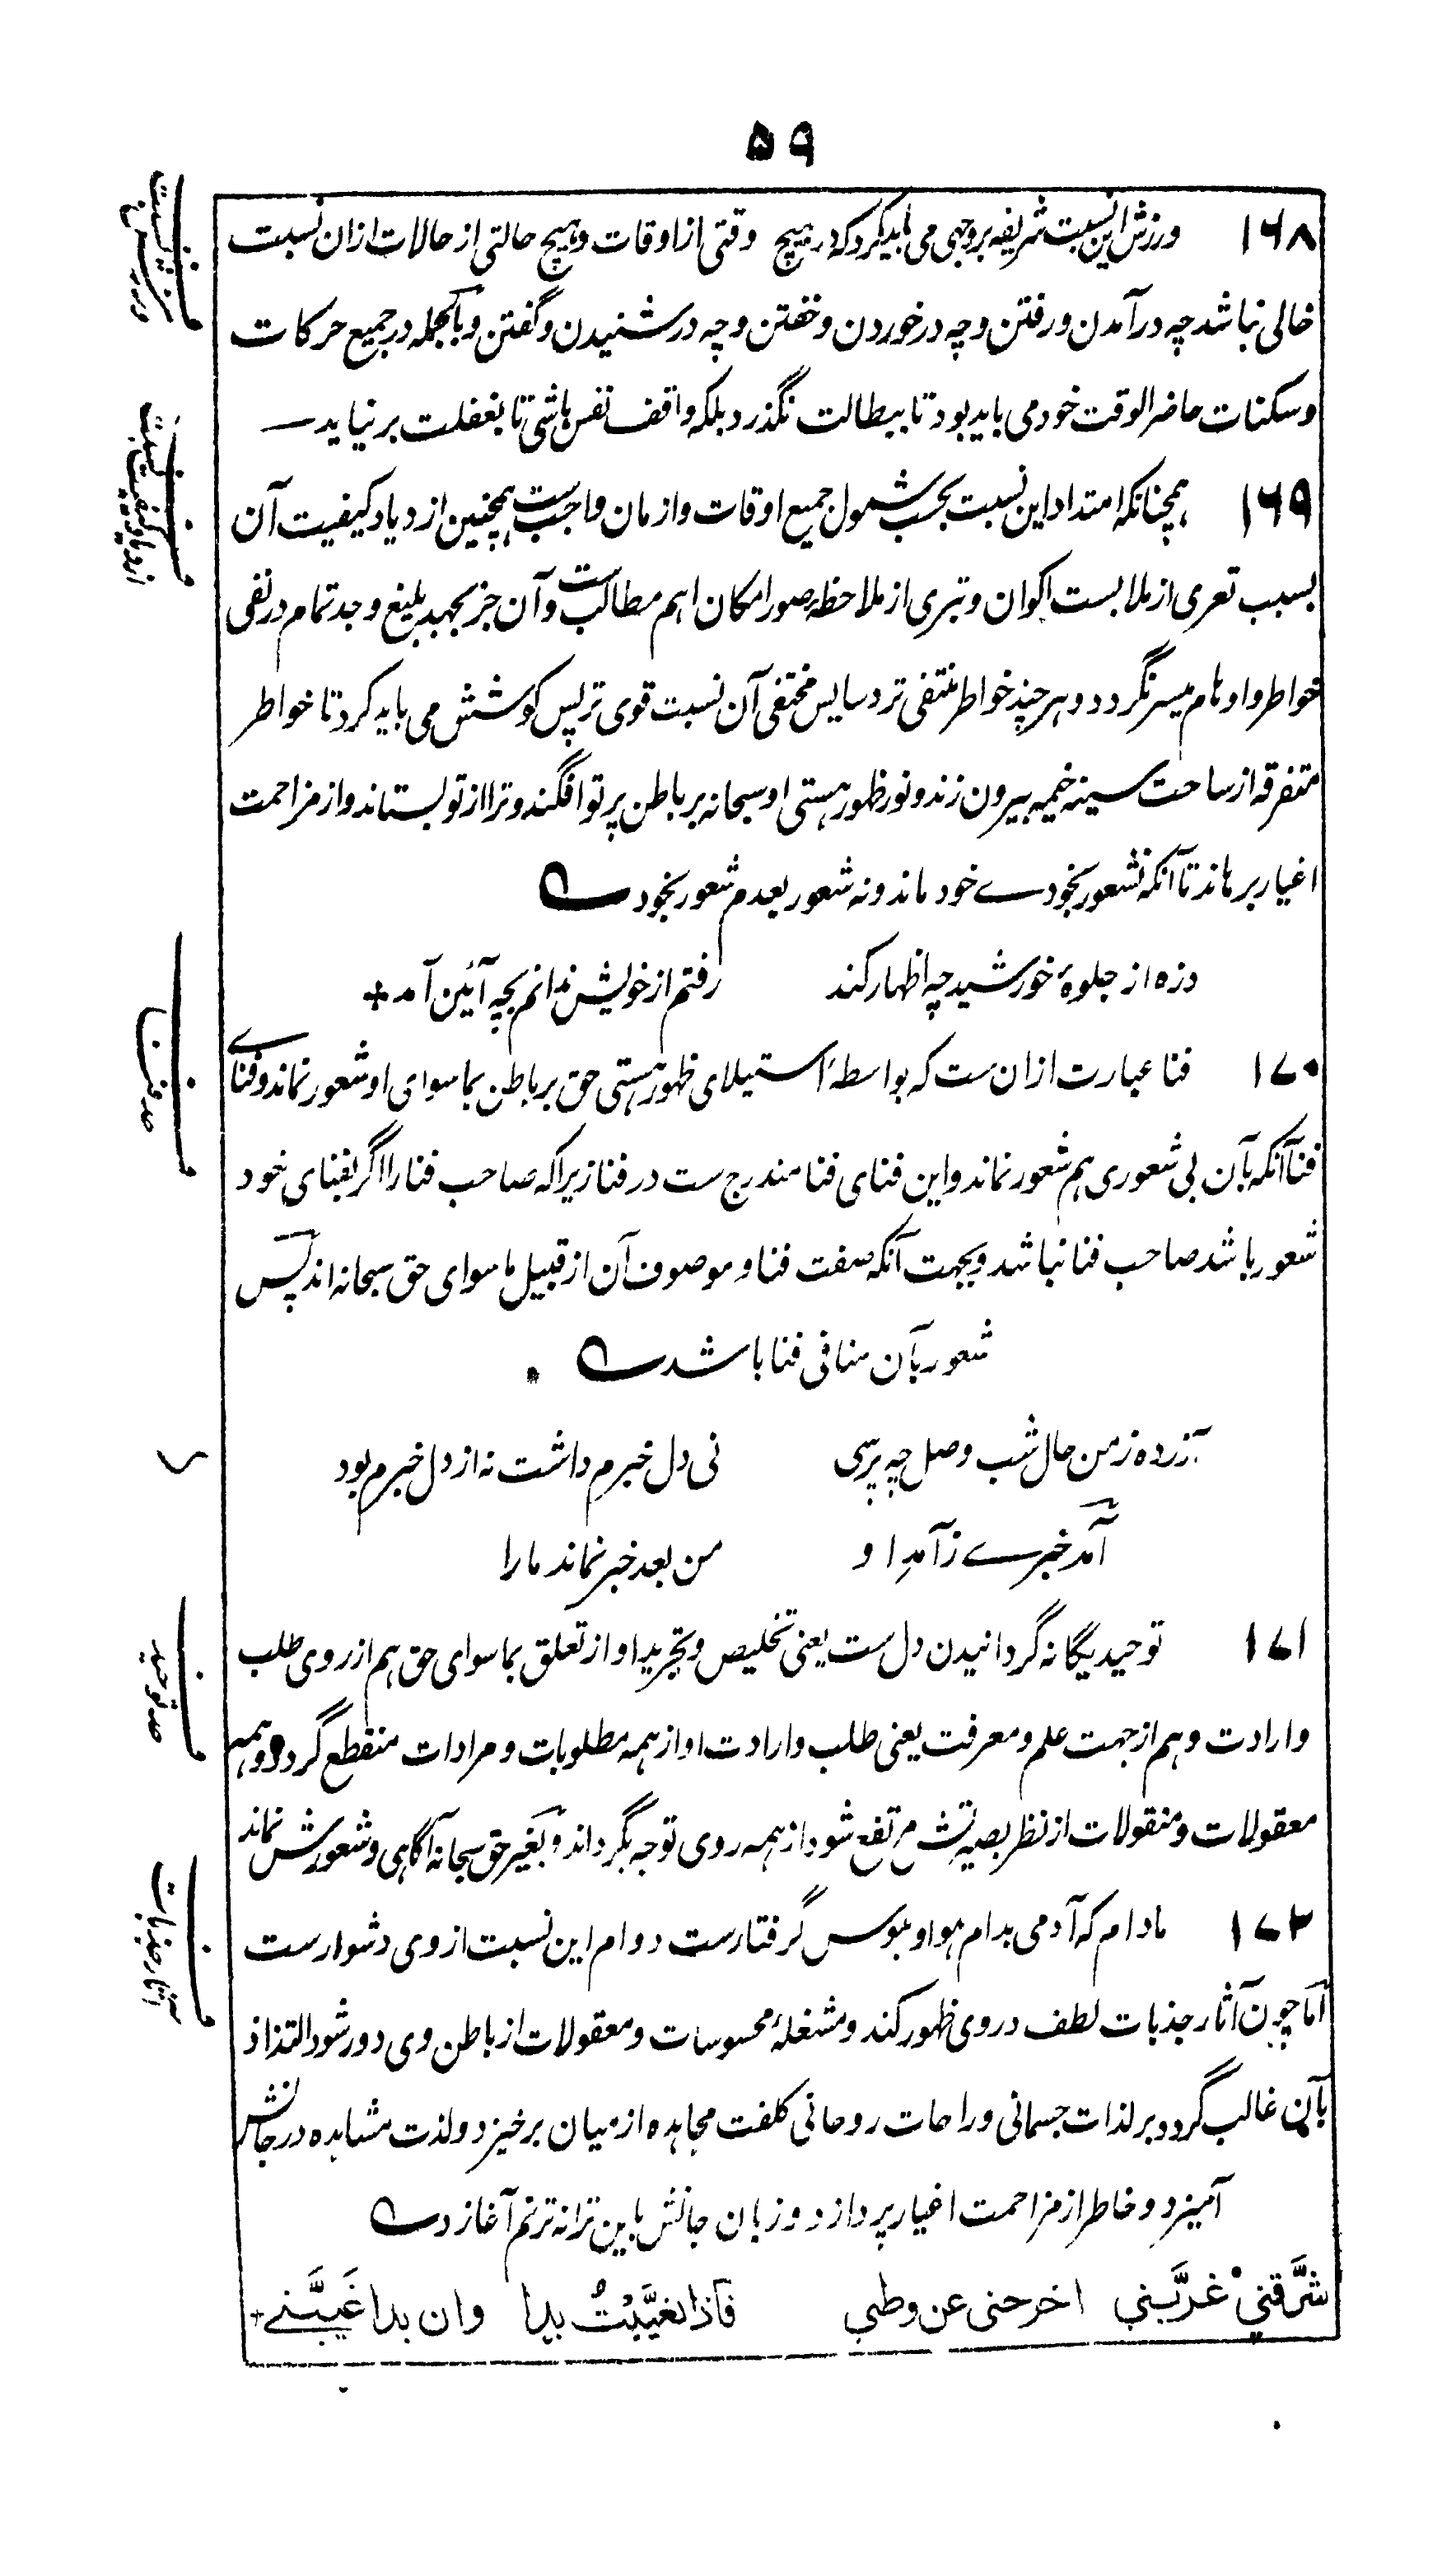 ۵۹
۱۶۸ ورزش این نسبت شریفه بر وجهی می باید کرد که در هیچ وقتی از اوقات و هیچ حالتی از حالات ازان نسبت
خالی نباشد چه در آمدن و رفتن و چه در خوردن و خفتن و چه در شنیدن و گفتن و بالجمله در جمیع حرکات
و سکنات حاضر الوقت خود می باید بود تا ببطالت نگذرد بلکه واقف نفس باشی تا بغفلت برنیاید
۱۶۹ همچنانکه امتداد این نسبت بحسب شمول جمیع اوقات و ازمان واجب ست همچنین ازدیاد کیفیت آن
بسبب تعری از ملابست اکوان و تبری از ملاحظۀ صور امکان اهم مطالب ست و آن جز بجهد بلیغ و جد تمام در نفی
خواطر و اوهام میسر نگردد و هر چند خواطر منتفی تر و سایس مختفی آن نسبت قوی تر پس کوشش می باید کرد تا خواطر
متفرقه از ساحت سینه خیمه بیرون زند و نور ظهور هستی او سبحانه بر باطن پرتو افگند و ترا از تو بستاند و از مزاحمت
اغیار برهاند تا آنکه نه شعور بخودی خود ماند و نه شعور بعدم شعور بخود
ذره از جلوۀ خورشید چه اظهار کند رفتم از خویش ندانم بچه آئین آمد +
۱۷۰ فنا عبارت ازان ست که بواسطۀ استیلای ظهور هستی حق بر باطن بماسوای او شعور نماند و فنای
فنا آنکه بآن بی شعوری هم شعور نماند و این فنای فنا مندرج ست در فنا زیراکه صاحب فنا را اگر بفنای خود
شعور باشد صاحب فنا نباشد و بجهت آنکه صفت فنا و موصوف آن از قبیل ماسوای حق سبحانه اند پس
شعور بآن منافی فنا باشد
آزرده ز من حال شب وصل چه پرسی نی دل خبرم داشت نه از دل خبرم بود
آمد خبرے ز آمدِ او من بعد خبر نماند ما را
۱۷۱ توحید یگانه گردانیدن دل ست یعنی تخلیص و تجرید او از تعلق بماسوای حق هم از روی طلب
و ارادت و هم از جهت علم و معرفت یعنی طلب و ارادت او از همه مطلوبات و مرادات منقطع گردد و همه
معقولات و منقولات از نظر بصیرتش مرتفع شود از همه روی توجه بگرداند و بغیر حق سبحانه آگاهی و شعورش نماند
۱۷۲ مادام که آدمی بدام هوا و هوس گرفتارست دوام این نسبت از وی دشوارست
اما چون آثار جذبات لطف در وی ظهور کند و مشغلۀ محسوسات و معقولات از باطن وی دور شود التذاذ
بآن غالب گردد بر لذات جسمانی و راحات روحانی کلفت مجاهده از میان برخیزد و لذت مشاهده در جانش
آمیزد و خاطر از مزاحمت اغیار پردازد و زبان جانش باین ترانه ترنم آغازد
شَرَّقنيْ غَرَّبني اخرجني عن وطني فاذا تغَيَّبْتُ بدا وان بدا غَيَّبَنے +
حد فنا
حد توحید
آثار جذبات